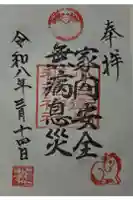 奉拝
家内安全
無病息災
令和八年三月十四日